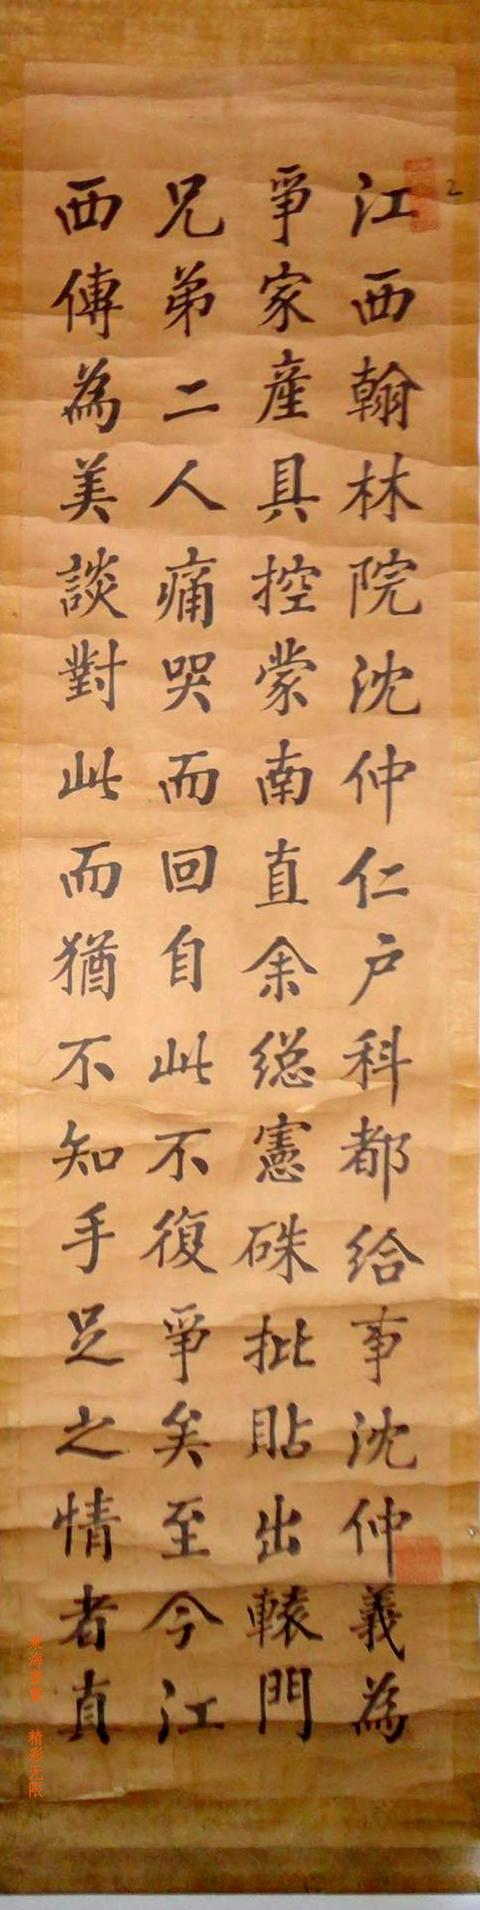 江西翰林院沈仲仁户科都给事沈仲義為
爭家産具控蒙南直余総憲硃批貼出轅門
兄弟二人痛哭而回自此不復爭矣至今江
西傳為美談對此而猶不知手足之情者直
2
精彩无限